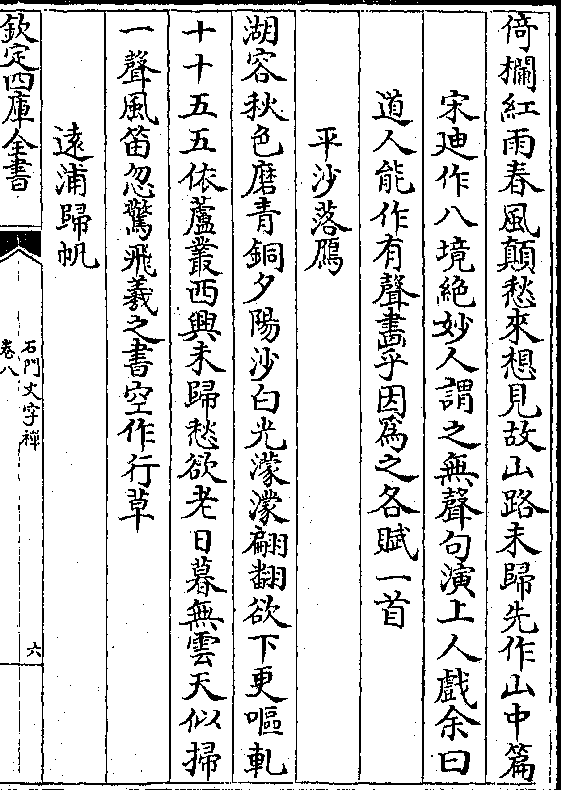 倚欄紅雨春風顛愁來想見故山路未歸先作山中篇
宋廸作八境絶妙人謂之無聲句演上人戲余曰
道人能作有聲畵乎因為之各賦一首
平沙落鴈
湖容秋色磨青銅夕陽沙白光濛濛翩翻欲下更嘔軋
十十五五依蘆叢西興未歸愁欲老日暮無雲天似掃
一聲風笛忽驚飛羲之書空作行草
逺浦歸帆
欽定四庫全書
石門文字禪
卷八
六